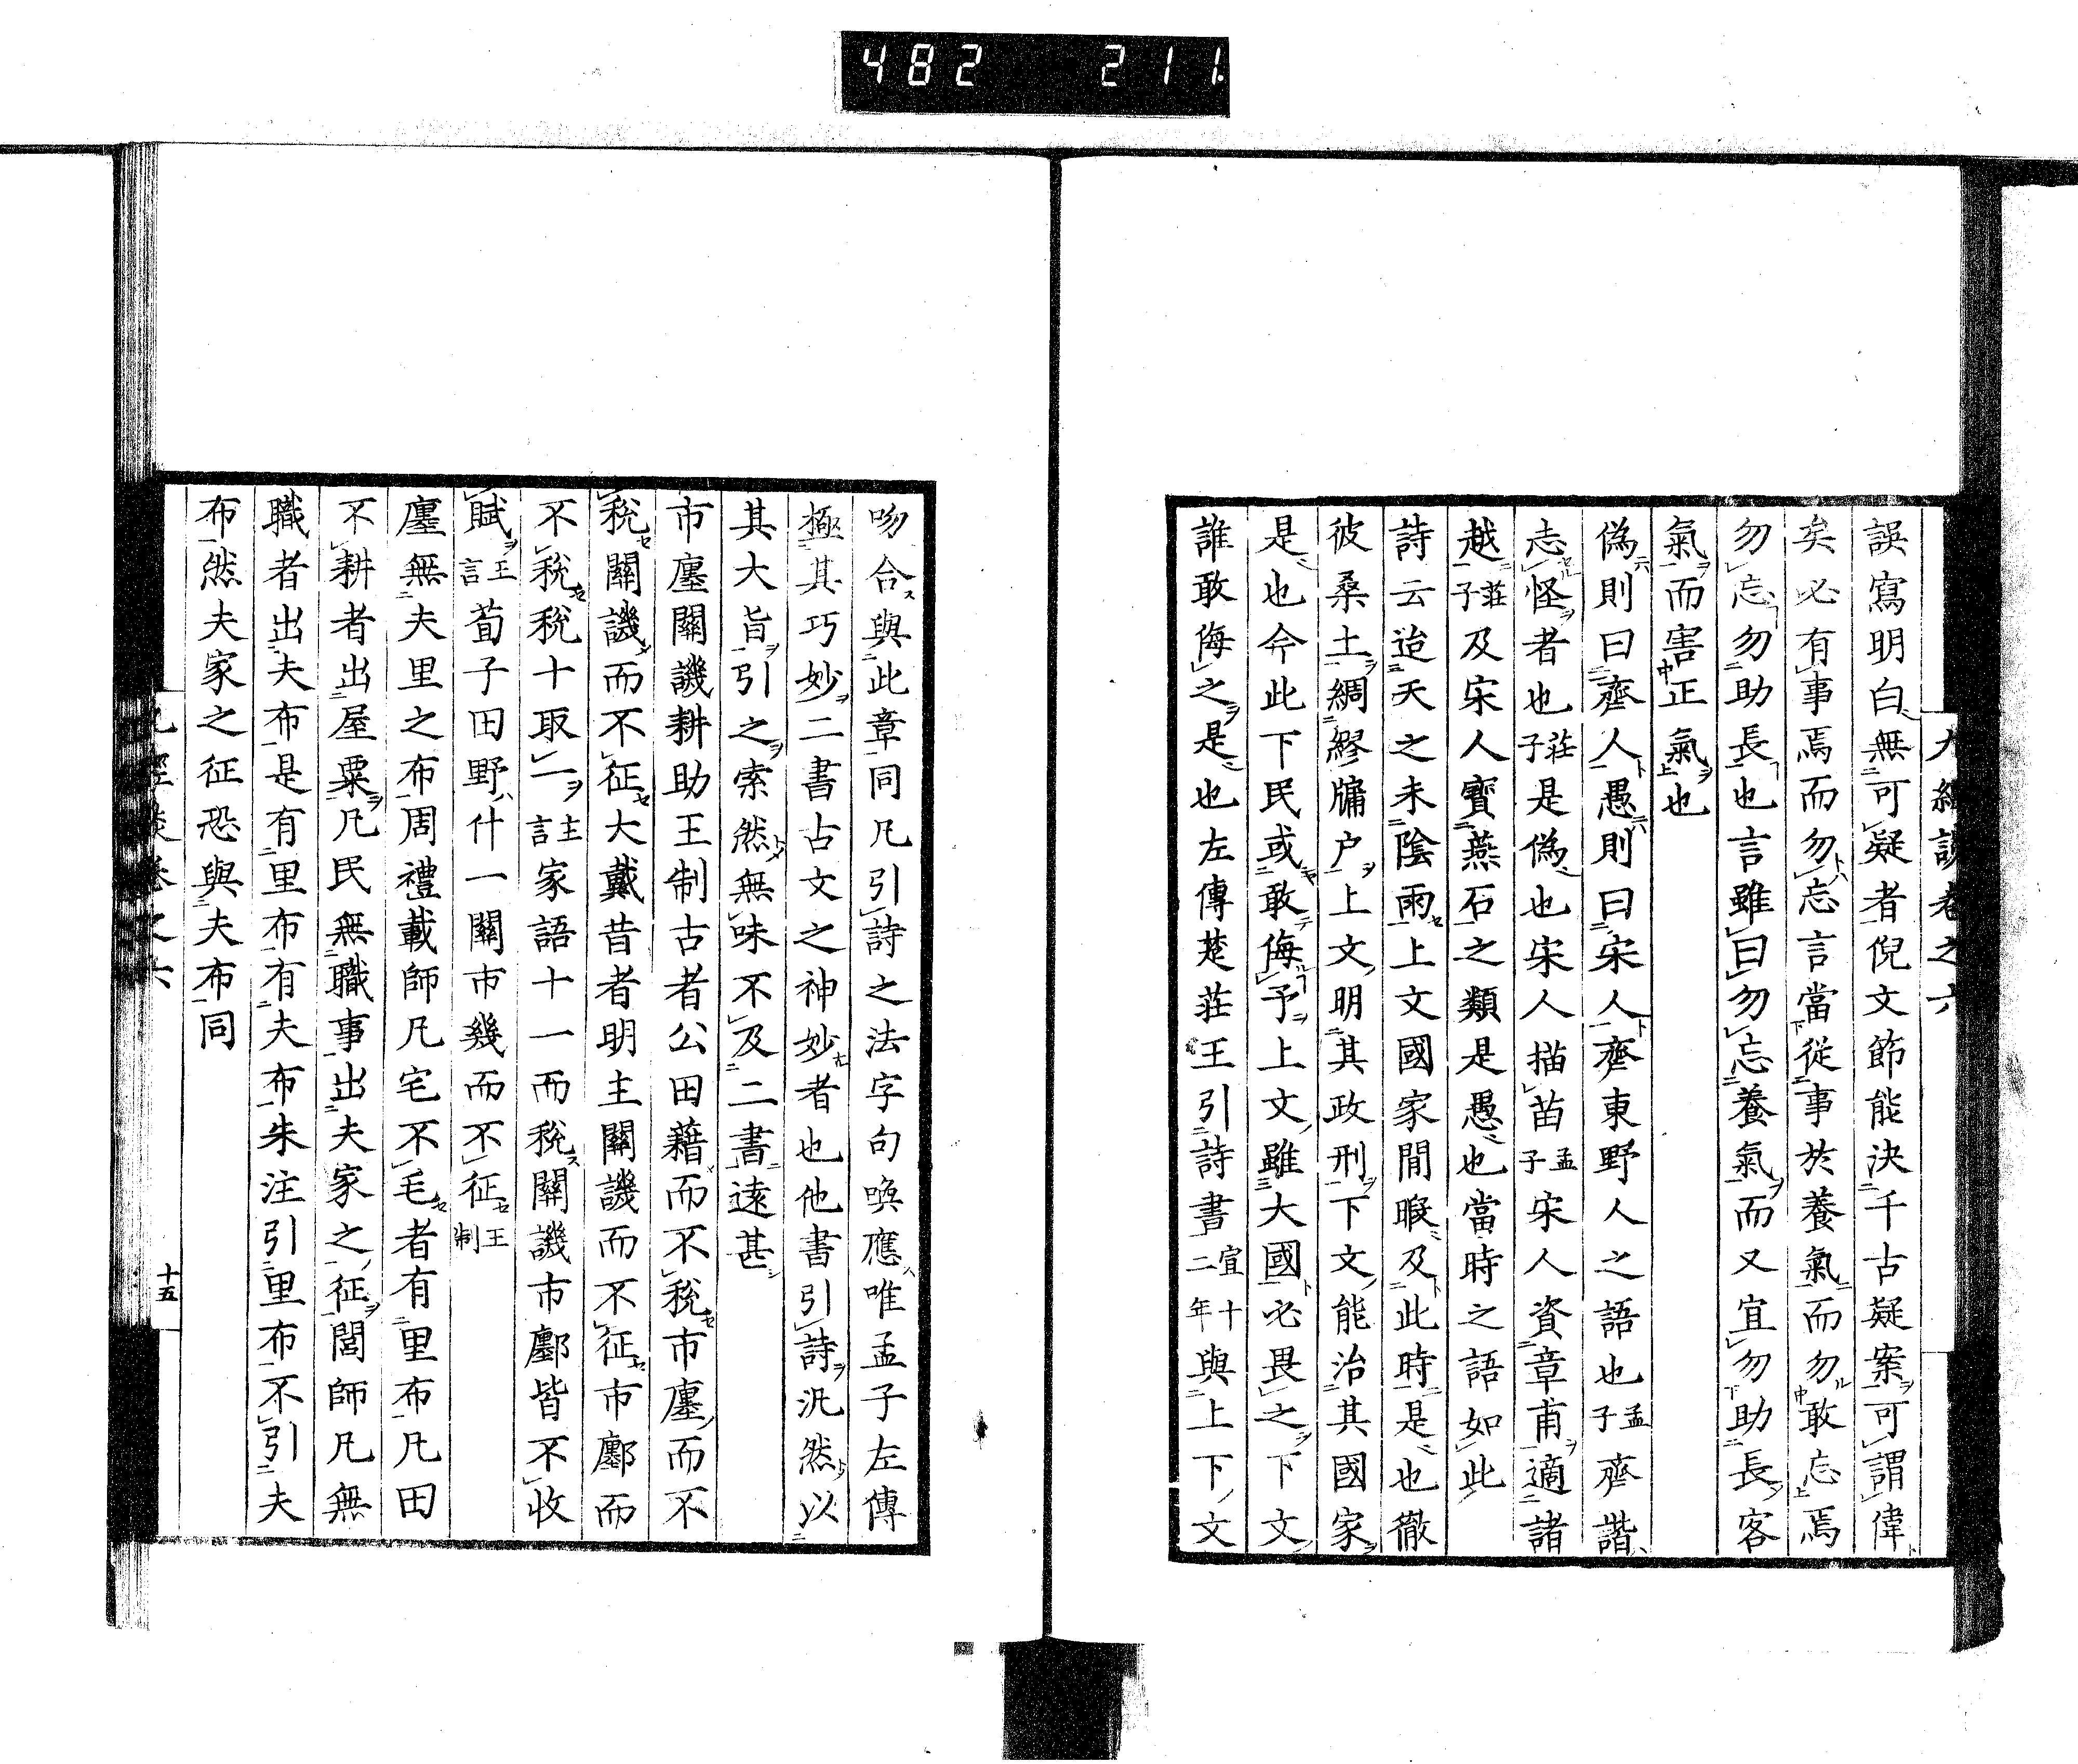 482 211
九經談卷之六
誤寫明白無可疑者倪文節能決千古疑案可謂偉
矣必有事焉而勿忘言當從事於養氣而勿敢忘焉
勿忘勿助長也言雖曰勿忘養氣而又宜勿助長客
氣而害正氣也
偽則曰齊人愚則曰宋人齊東野人之語也孟子齊諧
志怪者也莊子是偽也宋人描苗孟子宋人資章甫適諸
越莊子及宋人寶燕石之類是愚也當時之語如此
詩云迨天之未陰雨上文國家閒暇及此時是也徹
彼桑土綢繆牖户上文明其政刑下文能治其國家
是也今此下民或敢侮予上文雖大國必畏之下文
誰敢侮之是也左傳楚莊王引詩書宣十二年與上下文
吻合與此章同凡引詩之法字句喚應唯孟子左傳
極其巧妙二書古文之神妙者也他書引詩汎然以
其大旨引之索然無味不及二書遠甚
市廛關譏耕助王制古者公田藉而不稅市廛而不
稅關譏而不征大戴昔者明主關譏而不征市鄽而
不稅稅十取一主言家語十一而稅關譏市鄽皆不收
賦王言荀子田野什一關市幾而不征王制
廛無夫里之布周禮載師凡宅不毛者有里布凡田
不耕者出屋粟凡民無職事出夫家之征閭師凡無
職者出夫布是有里布有夫布朱注引里布不引夫
布然夫家之征恐與夫布同
九經談卷之六
十五